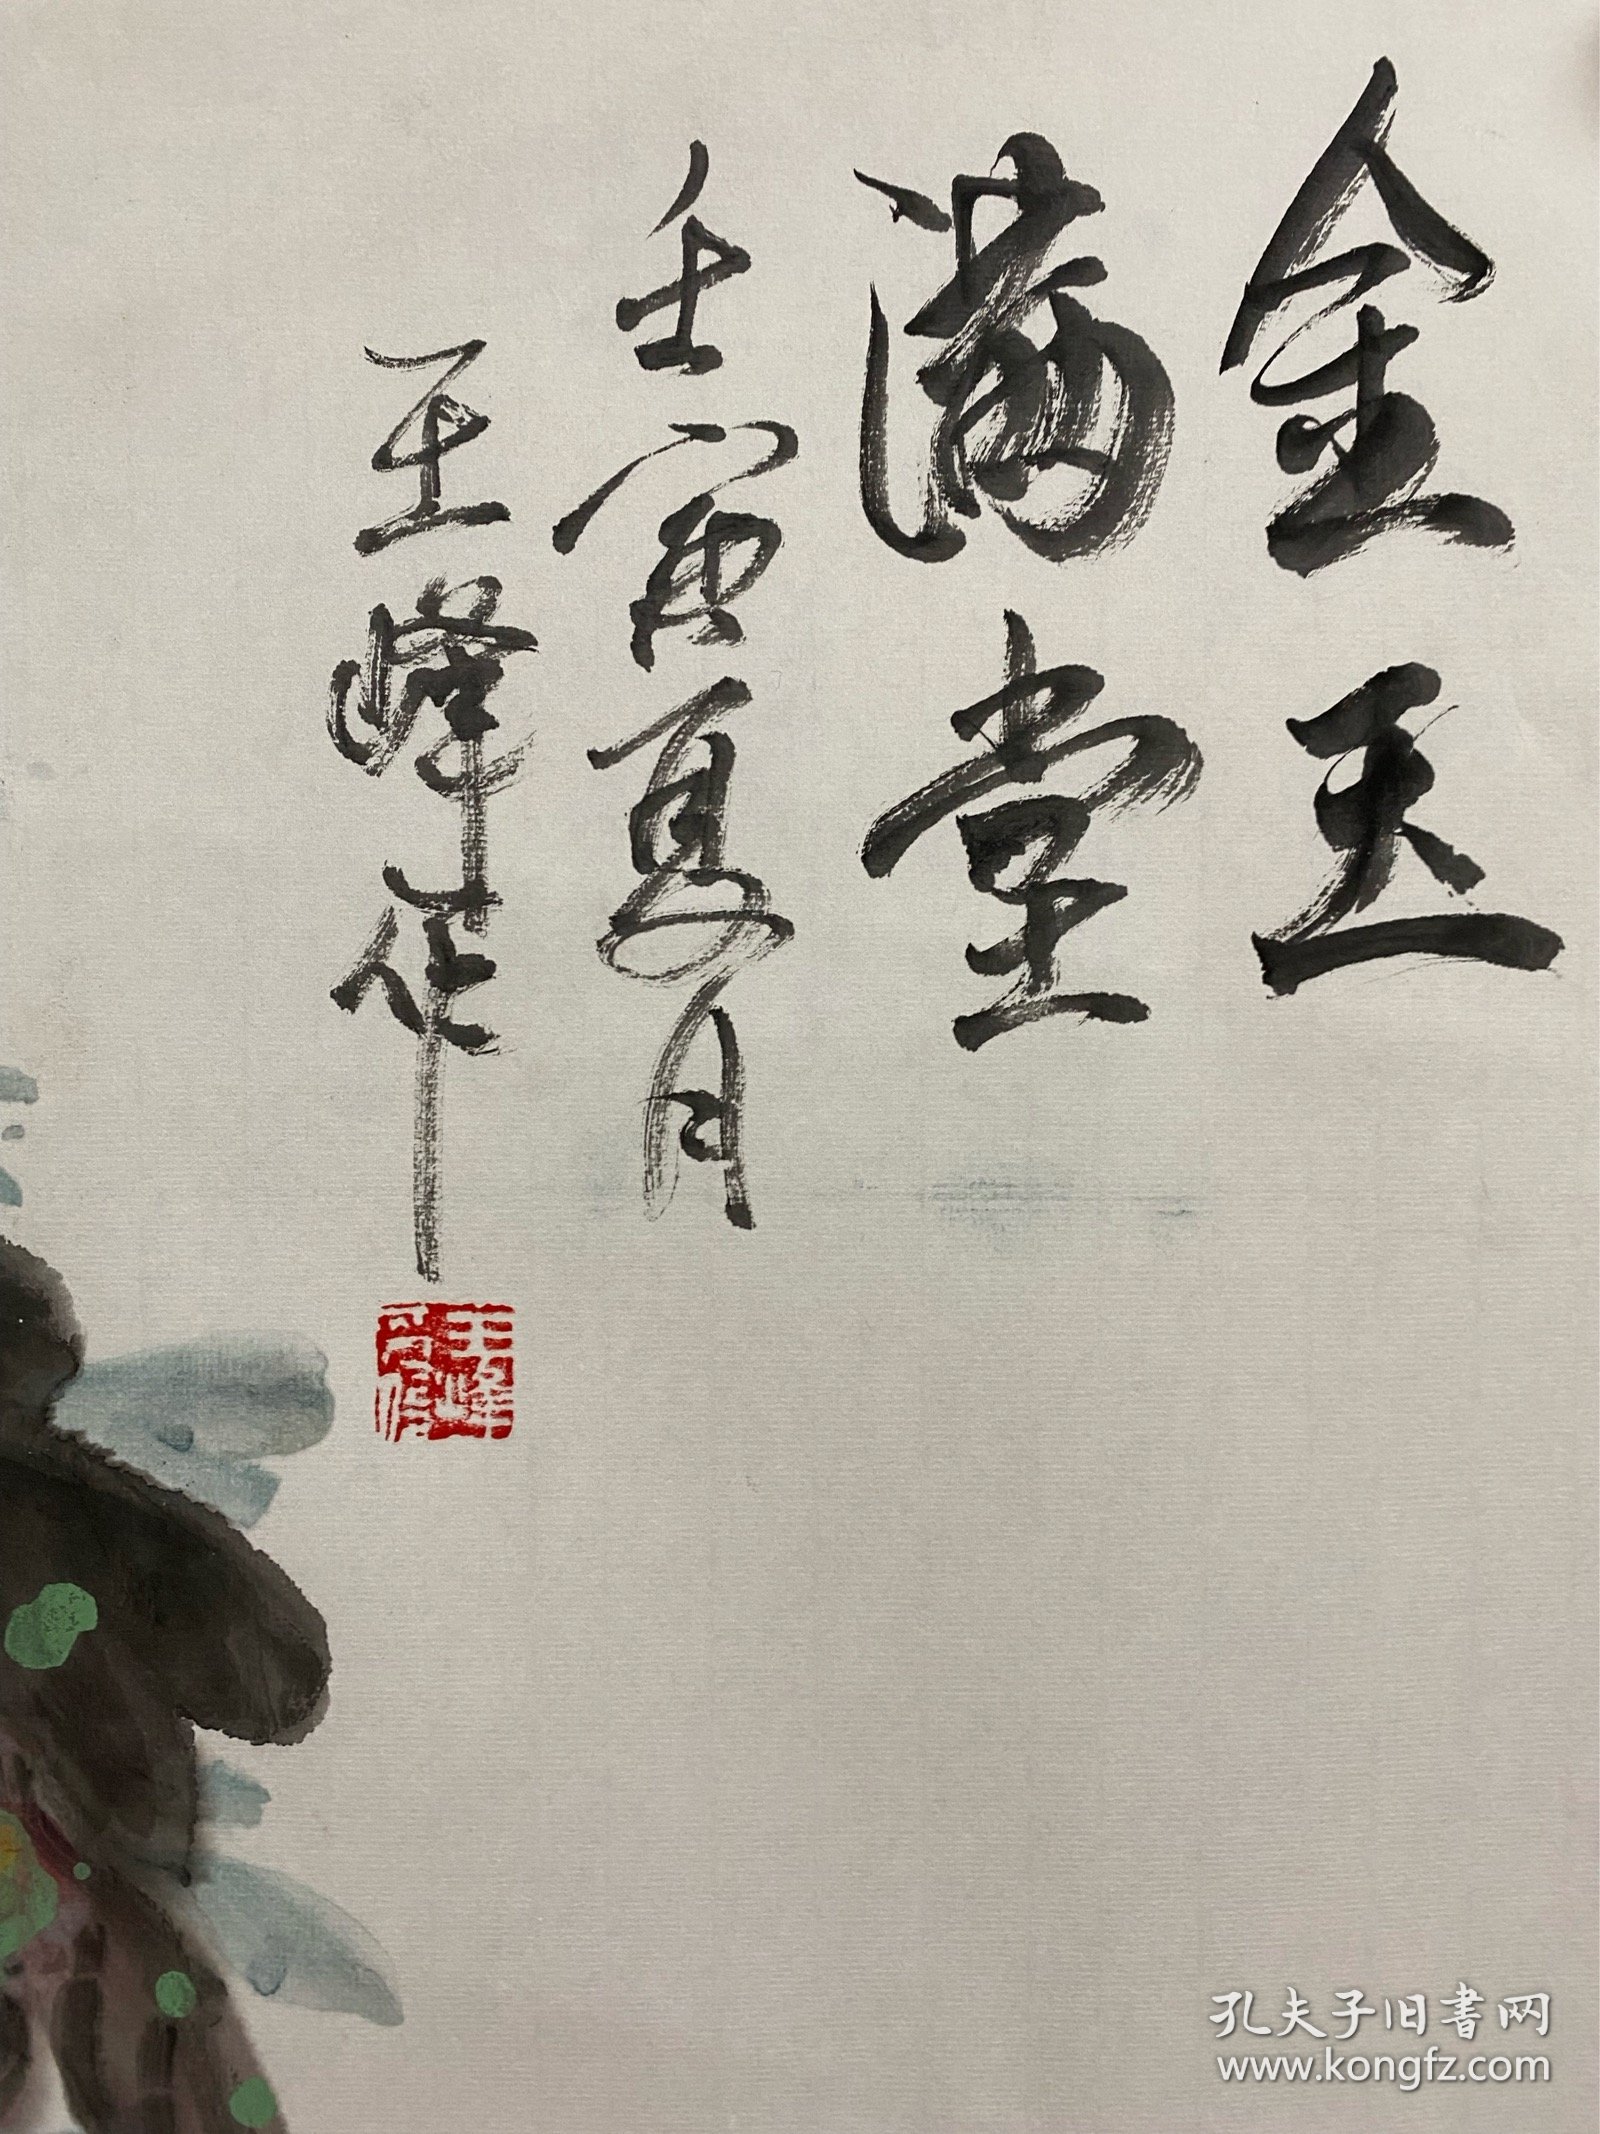 金玉
满堂
壬寅夏月
王峰作
王峰
孔夫子旧书网
www.kongfz.com